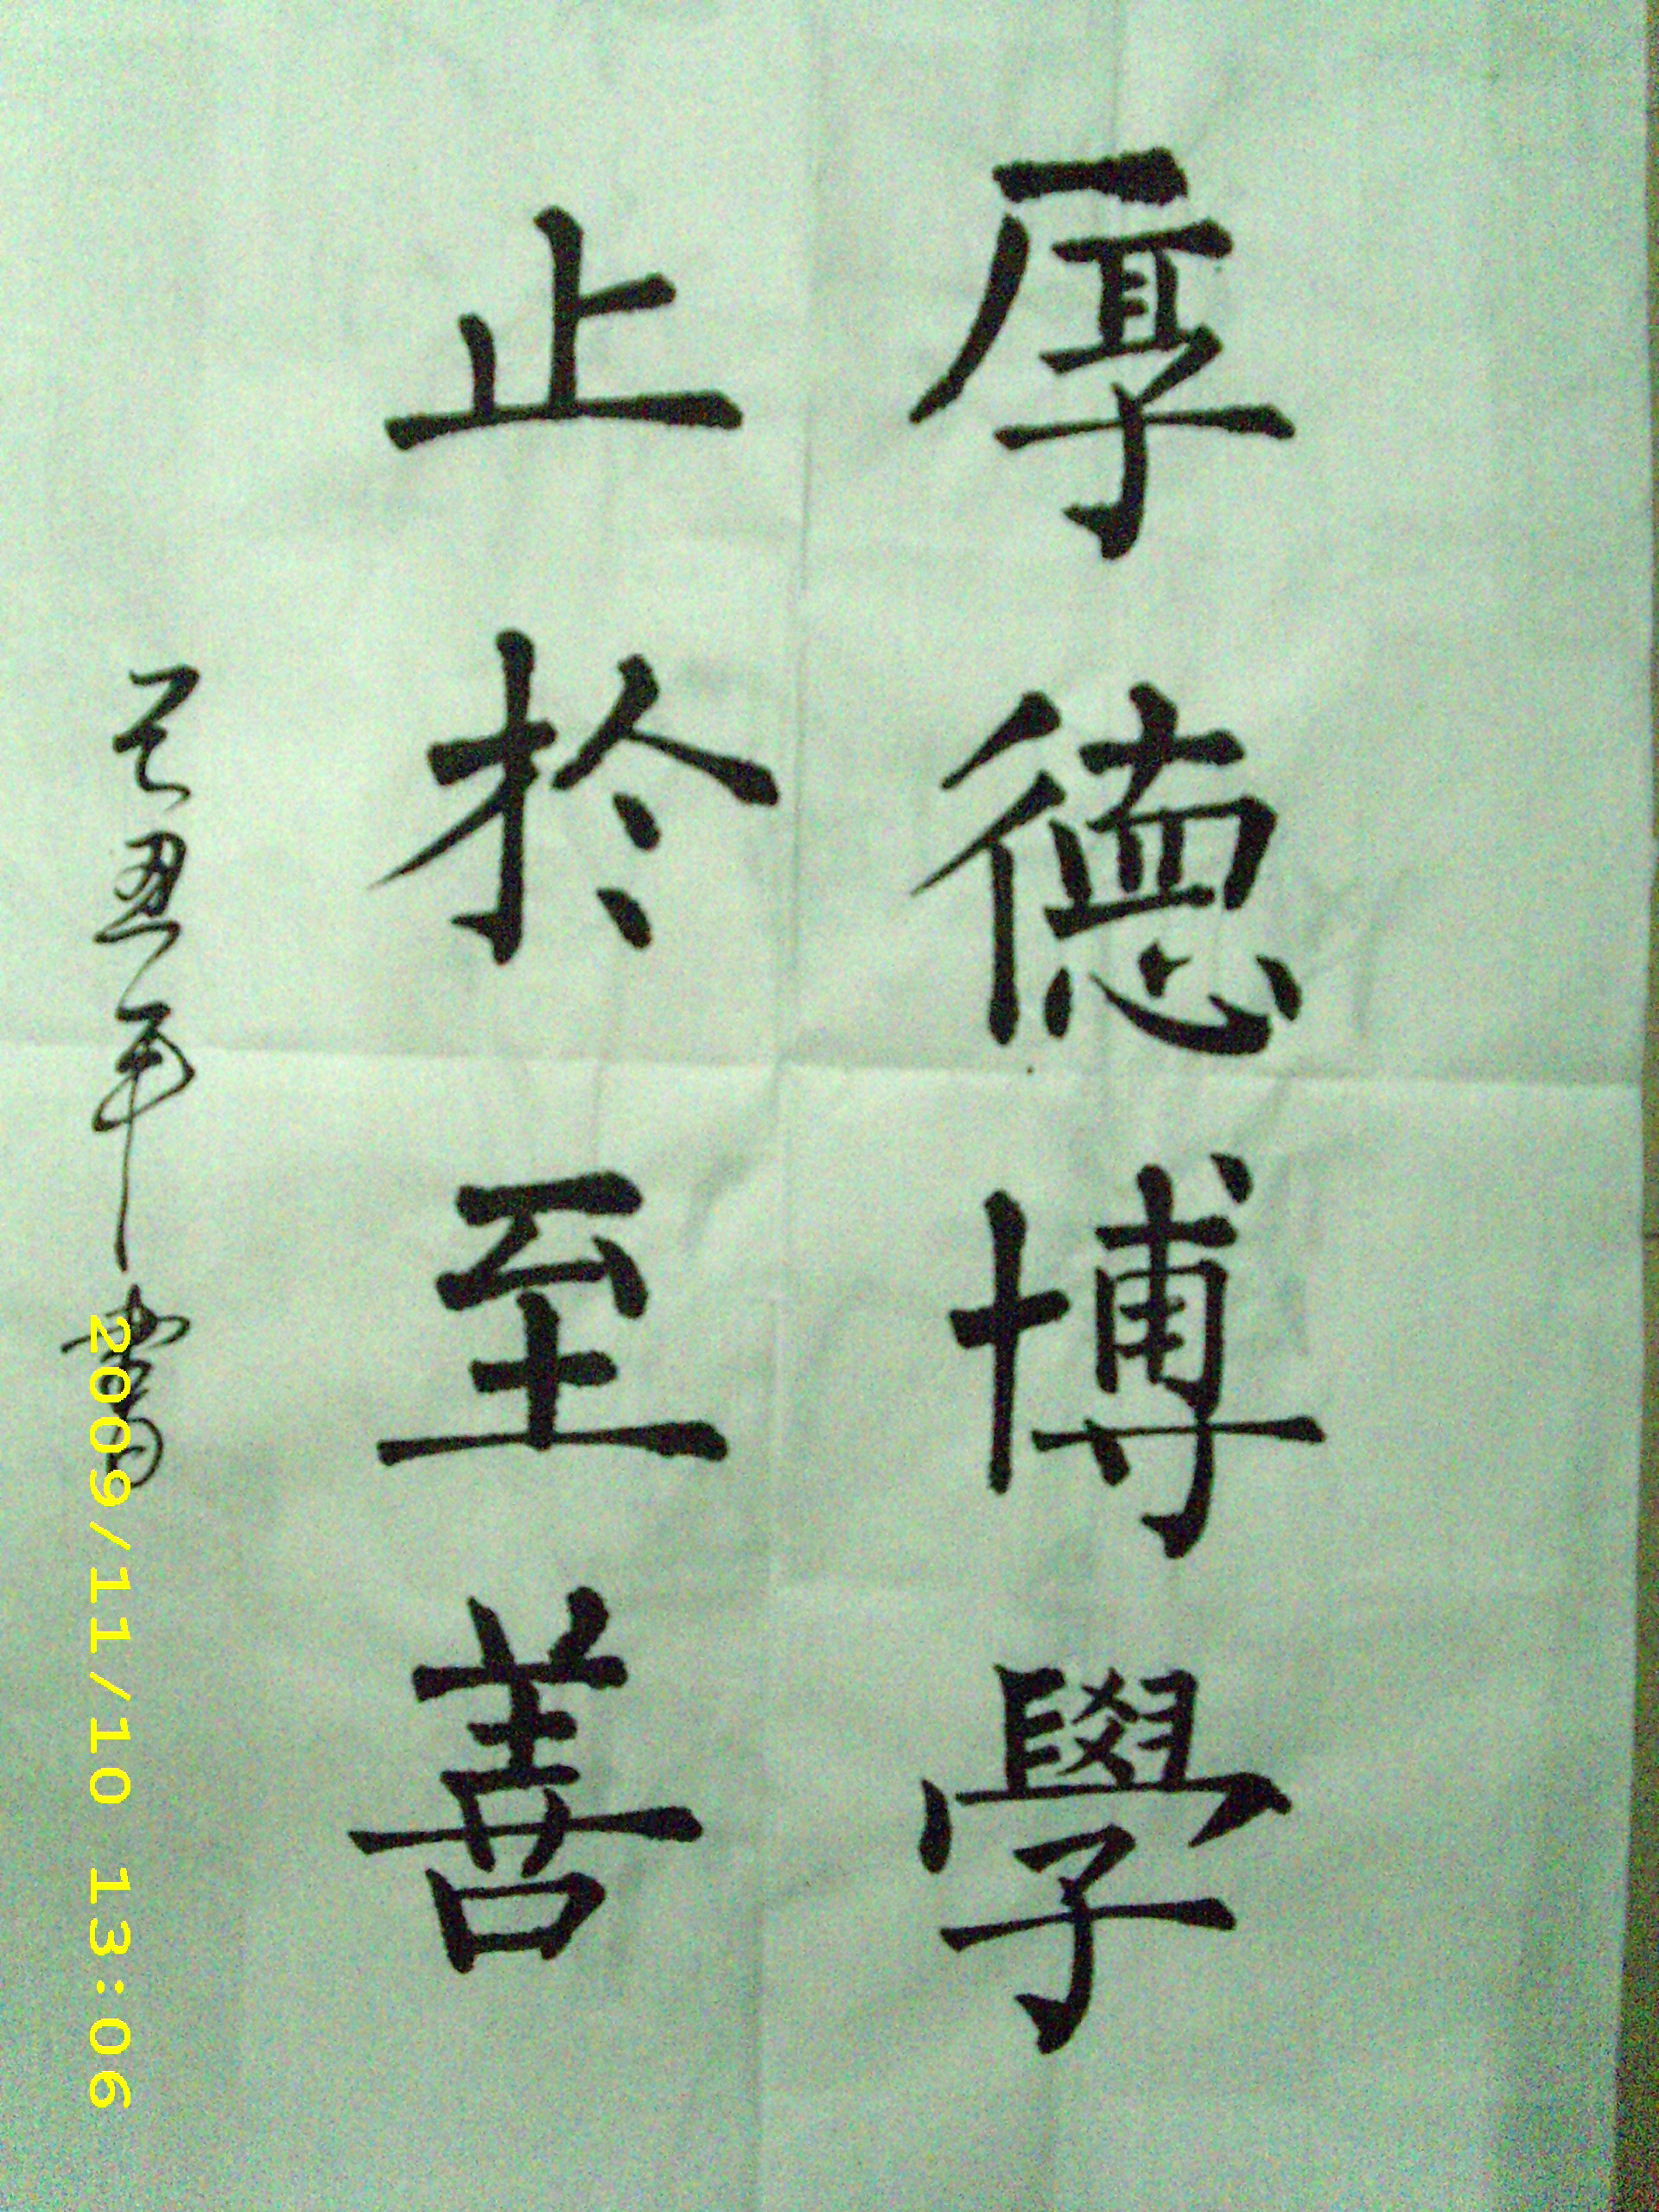 厚德博學
止於至善
己丑年書
2009/11/10 13:06